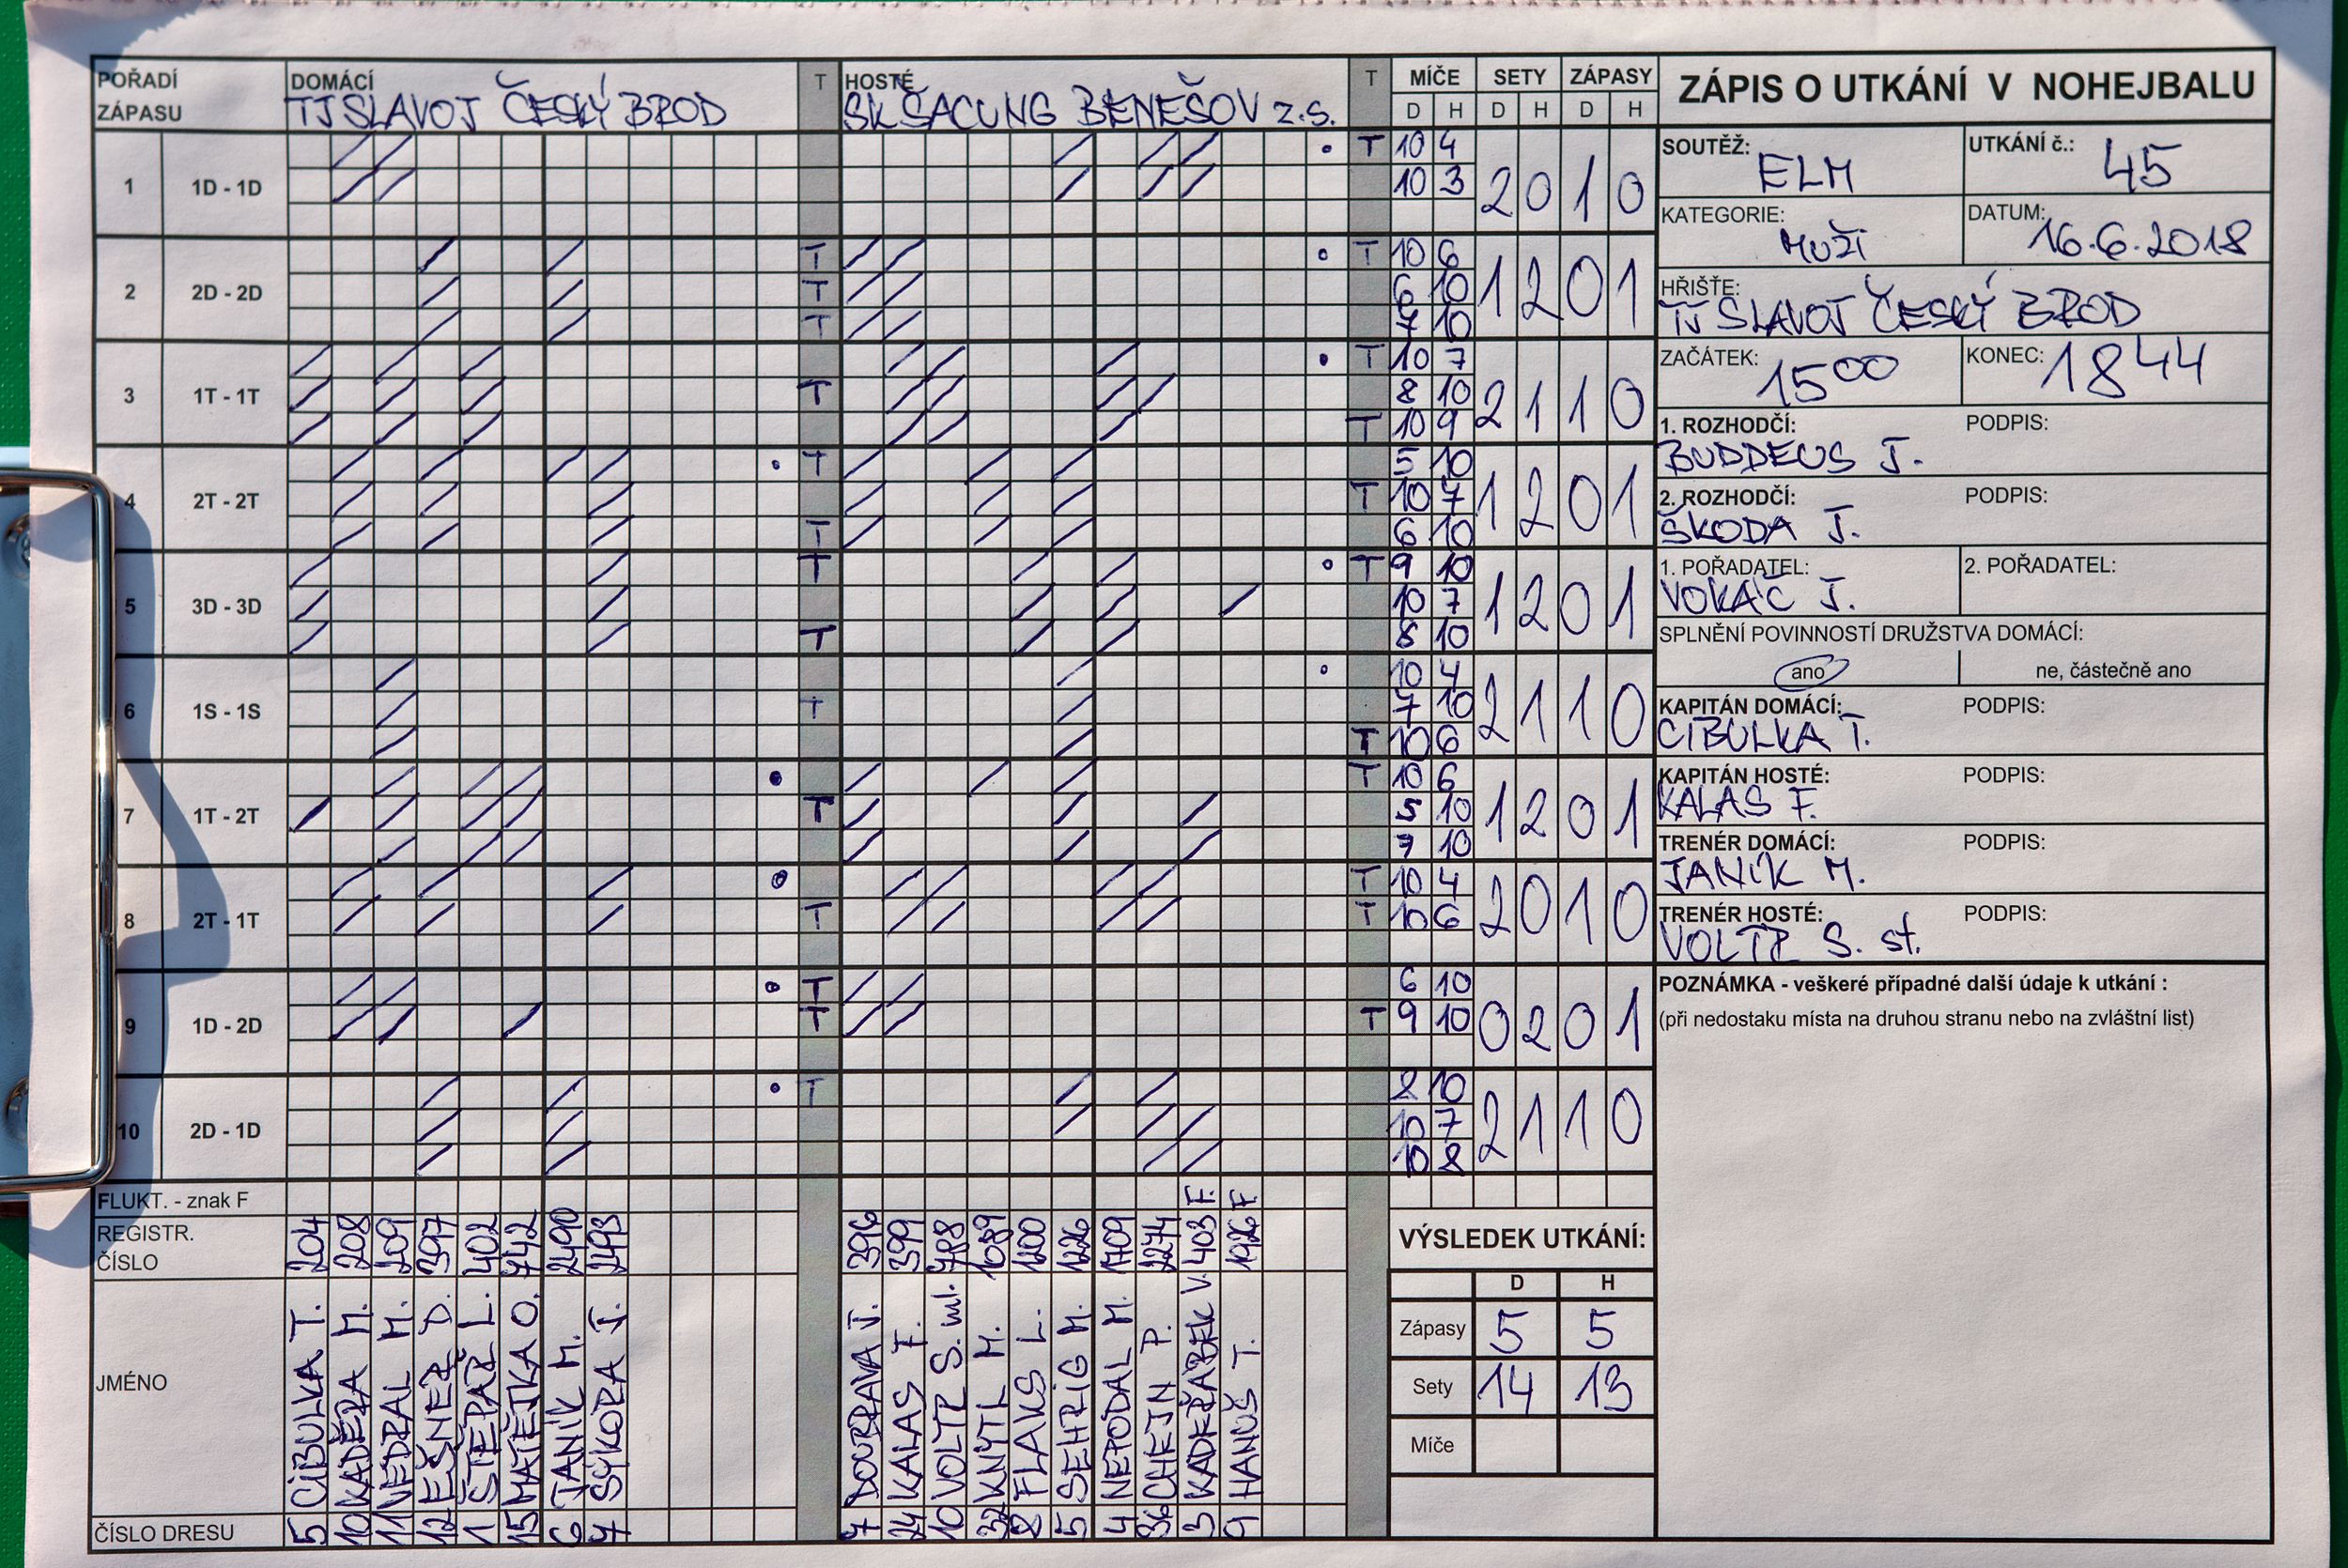 POŘADÍ ZÁPASU DOMÁCÍ T HOSTÉ T MÍČE SETY ZÁPASY
TJ SLAVOJ ČESKÝ BROD SK ŠACUNG BENEŠOV z.s. D H D H D H
1 1D - 1D T 10 4 2 0 1 0
10 3
2 2D - 2D T T 10 6 1 2 0 1
T 6 10
T 7 10
3 1T - 1T T 10 7 2 1 1 0
T 8 10
T 10 9
4 2T - 2T T 5 10 1 2 0 1
T 10 7
T 6 10
5 3D - 3D T T 9 10 1 2 0 1
10 7
T 8 10
6 1S - 1S 10 4 2 1 1 0
T 7 10
T 10 6
7 1T - 2T T 10 6 1 2 0 1
T 5 10
7 10
8 2T - 1T T 10 4 2 0 1 0
T T 10 6
9 1D - 2D T 6 10 0 2 0 1
T T 9 10
10 2D - 1D T 2 10 2 1 1 0
10 7
10 8
FLUKT. - znak F F F
REGISTR. ČÍSLO 204 208 209 397 402 742 2490 2493 396 399 788 1089 1200 1226 1709 2274 403 1926
JMÉNO CIBULKA T. KADĚRA M. NEDRAL M. EŠNER D. ŠTĚPAŘ L. MATĚJKA O. JANÍK M. SÝKORA J. DOUBRAVA J. KALAS F. VOLTR S. ml. KNYTL M. FLAKS L. SEHRIG M. NEPODAL M. CHEJN P. KADEŘÁBEK V. HANUŠ T.
ČÍSLO DRESU 5 10 11 12 1 15 6 7 7 24 10 32 2 5 4 36 3 9
VÝSLEDEK UTKÁNÍ:
D H
Zápasy 5 5
Sety 14 13
Míče
ZÁPIS O UTKÁNÍ V NOHEJBALU
SOUTĚŽ: ELM UTKÁNÍ č.: 45
KATEGORIE: MUŽI DATUM: 16.6.2018
HŘIŠTĚ:
TJ SLAVOJ ČESKÝ BROD
ZAČÁTEK: 15 00 KONEC: 18 44
1. ROZHODČÍ: PODPIS:
BUDDEUS J.
2. ROZHODČÍ: PODPIS:
ŠKODA J.
1. POŘADATEL: 2. POŘADATEL:
VOKÁČ J.
SPLNĚNÍ POVINNOSTÍ DRUŽSTVA DOMÁCÍ:
ano ne, částečně ano
KAPITÁN DOMÁCÍ: PODPIS:
CIBULKA T.
KAPITÁN HOSTÉ: PODPIS:
KALAS F.
TRENÉR DOMÁCÍ: PODPIS:
JANÍK M.
TRENÉR HOSTÉ: PODPIS:
VOLTR S. st.
POZNÁMKA - veškeré případné další údaje k utkání :
(při nedostaku místa na druhou stranu nebo na zvláštní list)